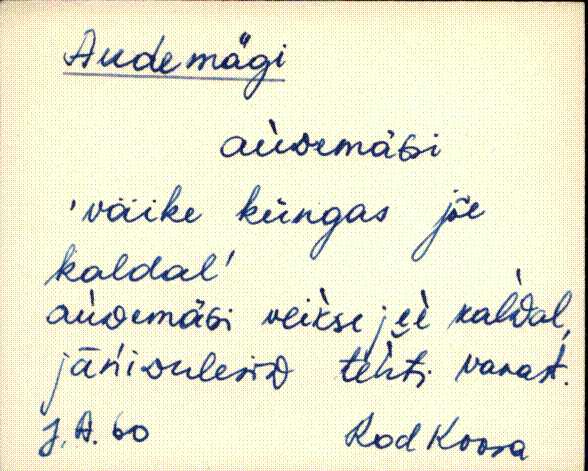 Audemägi
aùᴅemäɢi
'väike küngas jõe
kaldal'
aùᴅemäɢi veikse jẹè kaĺᴅal,
jāńiᴅulesiᴅ tehti vanast.
J.A. 60 Kod Koosa